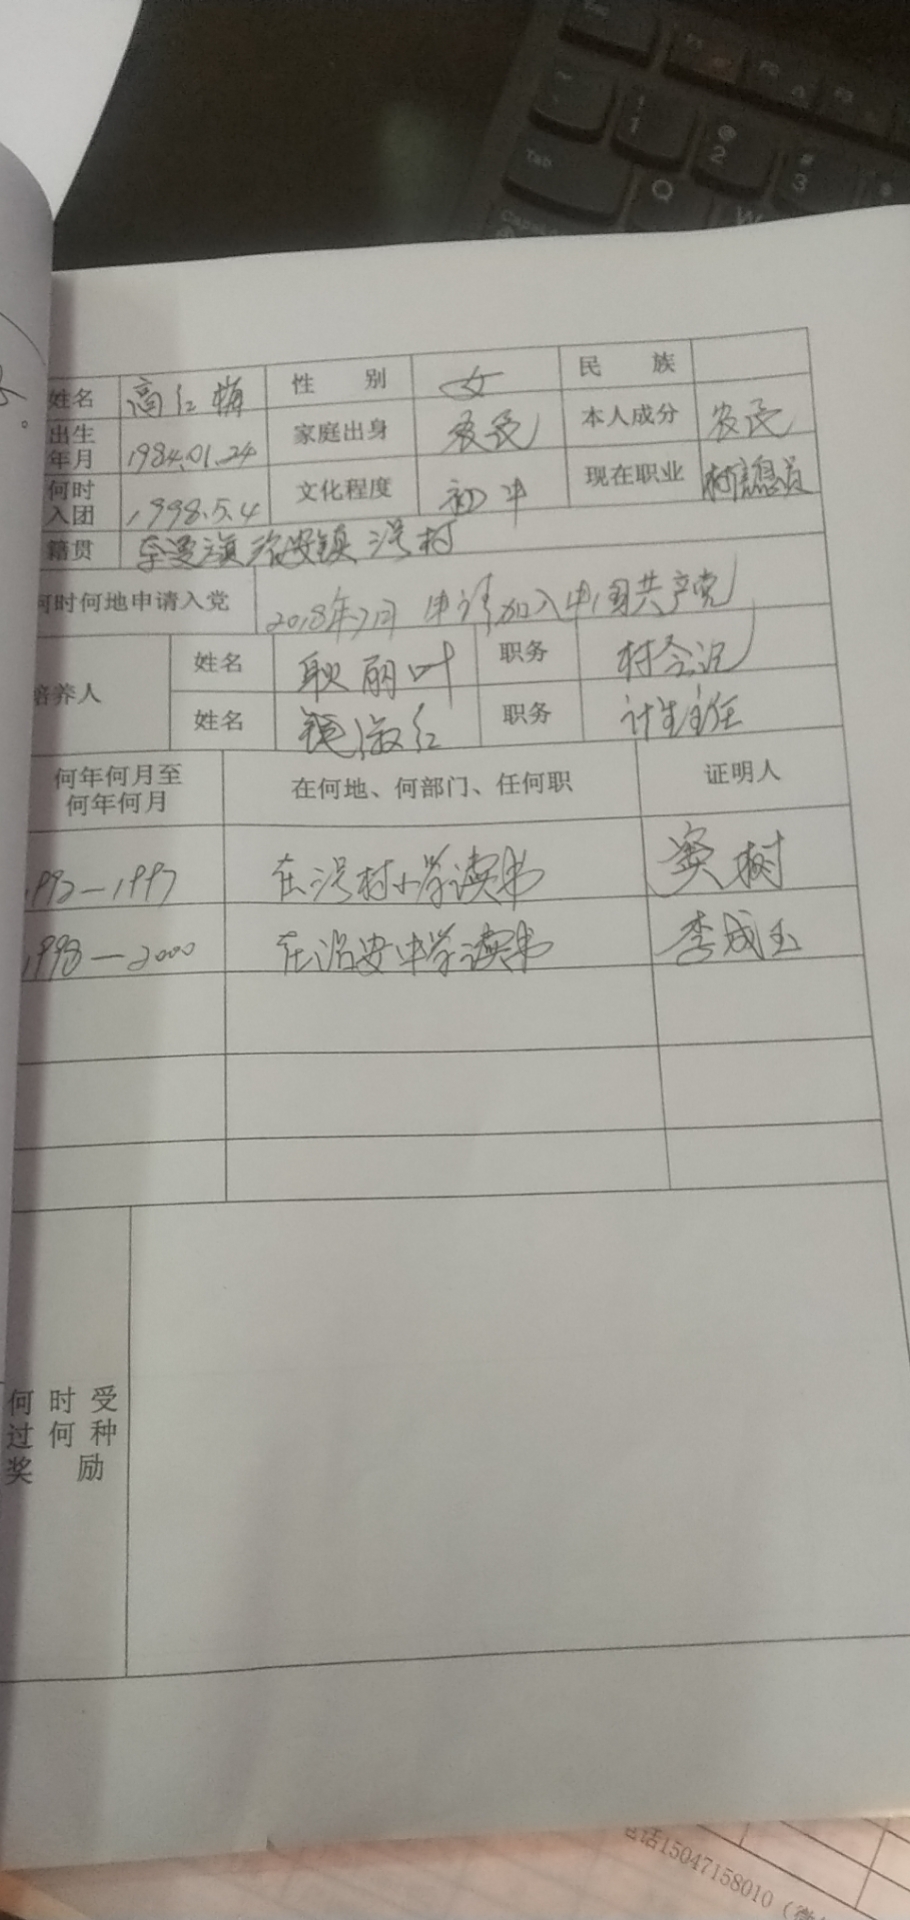 姓名 高红梅 性 别 女 民 族
出生年月 1984.01.24 家庭出身 农民 本人成分 农民
何时入团 1998.5.4 文化程度 初中 现在职业 村信息员
籍贯 治安镇 村
何时何地申请入党 2018年7月 申请加入中国共产党
培养人 姓名 耿丽叶 职务 村会计
姓名 淑红 职务 计生主任
何年何月至何年何月 在何地、何部门、任何职 证明人
1992—1997 在 村小学读书 树
1998—2000 在治安中学读书 李成玉
何时受
过何种
奖励
电话15047158010（微
Tab
Q
W
1
@
2
#
3